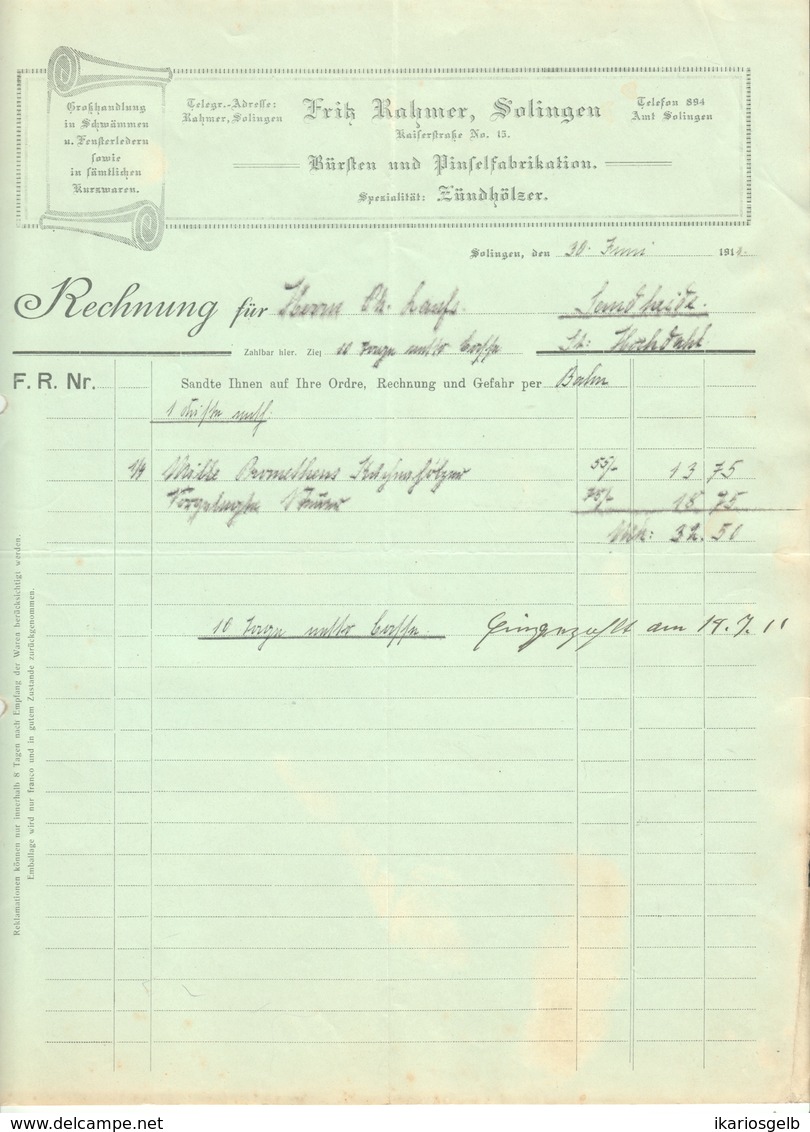 Großhandlung
in Schwämmen
u. Fensterledern
sowie
in sämtlichen
Kurzwaren.
Telegr.-Adresse:
Rahmer, Solingen
Fritz Rahmer, Solingen
Kaiserstraße No. 15.
Telefon 894
Amt Solingen
Bürsten und Pinselfabrikation.
Spezialität: Zündhölzer.
Solingen, den 30. Juni 191
Rechnung für Herrn
Zahlbar hier. Ziel 10 Tage netto Cassa St: Hochdahl
F. R. Nr. Sandte Ihnen auf Ihre Ordre, Rechnung und Gefahr per Bahn
1 Kiste
1/4 Mille Prometheus 55/- 13 75
75/- 18 75
Mk: 32.50
10 Tage netto Cassa. Eingezahlt am 19.7.11
Reklamationen können nur innerhalb 8 Tagen nach Empfang der Waren berücksichtigt werden.
Emballage wird nur franco und in gutem Zustande zurückgenommen.
delcampe.net
ikariosgelb